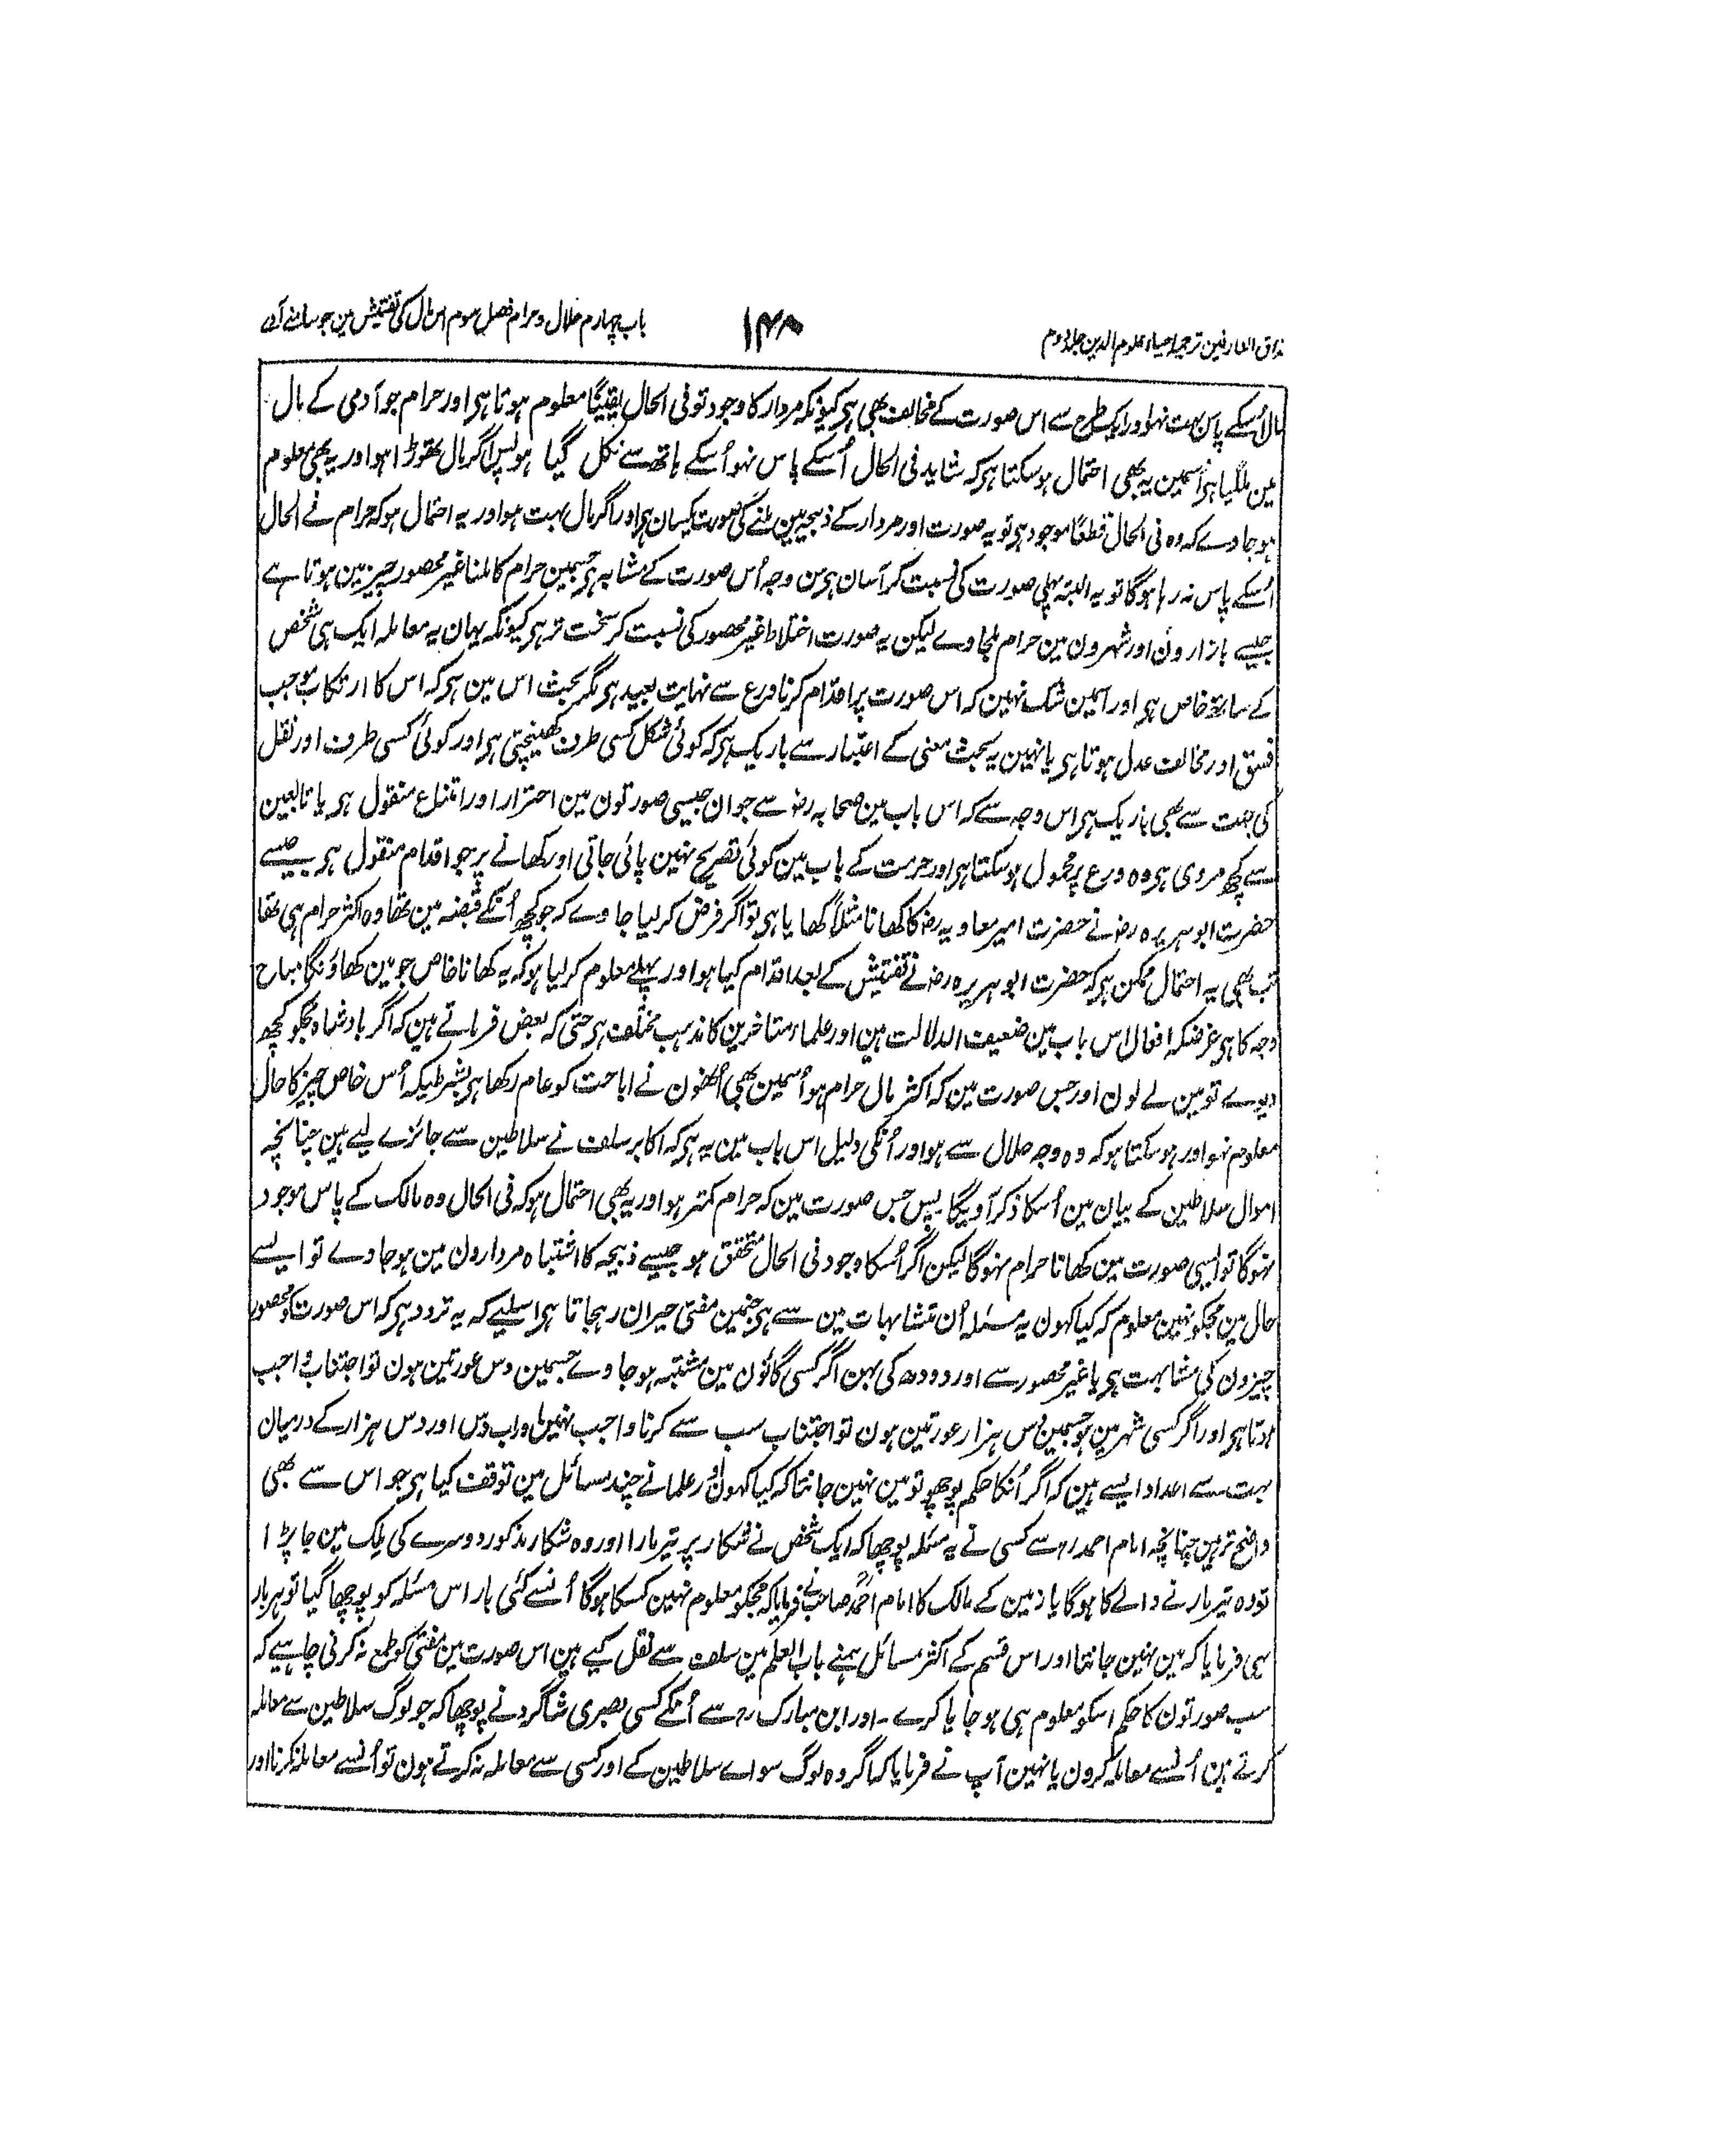 مذاق العارفین ترجمہ احیاء علوم الدین جلد دوم
۱۴۸
باب چہارم حلال و حرام فصل سوم اس مال کی تفتیش مین جو سامنے آوے
مال اُسکے پاس بہت نہو اور ایک طرح سے اس صورت کے مخالف بھی ہی کیونکہ مردار کا وجود تو فی الحال یقینًا معلوم ہوتا ہی اور حرام جو آدمی کے مال
مین ملگیا ہی اُسمین یہ بھی احتمال ہوسکتا ہی کہ شاید فی الحال اُسکے پاس نہو اُسکے ہاتھ سے نکل گیا ہو پس اگر مال تھوڑا ہو اور یہ بھی معلوم
ہوجاوے کہ وہ فی الحال قطعًا موجود ہی تو یہ صورت اور مردار کے ذبیحہ مین ملنے کی صورت یکسان ہی اور اگر مال بہت ہو اور یہ احتمال ہو کہ حرام فے الحال
اُسکے پاس نہ رہا ہوگا تو یہ البتہ پہلی صورت کی نسبت کر آسان ہی من وجہ اُس صورت کے مشابہ ہی جسمین حرام کا ملنا غیر محصور چیز مین ہوتا ہے
جیسے بازارون اور شہرون مین حرام ملجاوے لیکن یہ صورت اختلاط غیر محصور کی نسبت کر سخت تر ہی کیونکہ یہان یہ معاملہ ایک ہی شخص
کے ساتھ خاص ہی اور اسمین شک نہین کہ اس صورت پر اقدام کرنا ورع سے نہایت بعید ہی مگر بحث اس مین ہی کہ اس کا ارتکاب موجب
فسق اور مخالف عدل ہوتا ہی یا نہین یہ بحث معنی کے اعتبار سے باریک ہی کہ کوئی شکل کسی طرف کھینچتی ہی اور کوئی کسی طرف اور نقل
کی جہت سے بھی باریک ہی اس وجہ سے کہ اس باب مین صحابہ رضہ سے جو ان جیسی صورتون مین احتراز اور امتناع منقول ہی یا تابعین
سے کچھ مروی ہی وہ ورع پر محمول ہوسکتا ہی اور حرمت کے باب مین کوئی تصریح نہین پائی جاتی اور کھانے پر جو اقدام منقول ہی جیسے
حضرت ابوہریرہ رضہ نے حضرت امیر معاویہ رضہ کا کھانا مثلًا کھایا ہی تو اگر فرض کر لیا جاوے کہ جو کچھ اُنکے قبضہ مین تھا وہ اکثر حرام ہی تھا
تب بھی یہ احتمال ممکن ہی کہ حضرت ابوہریرہ رضہ نے تفتیش کے بعد اقدام کیا ہو اور پہلے معلوم کر لیا ہو کہ یہ کھانا خاص جو مین کھاؤنگا مباح
وجہ کا ہی غرضکہ افعال اس باب مین ضعیف الدلالت ہین اور علماء متاخرین کا مذہب مختلف ہی حتی کہ بعض فرماتے ہین کہ اگر بادشاہ مجکو کچھ
دیوے تو مین لے لون اور جس صورت مین کہ اکثر مال حرام ہو اُسمین بھی اُنھون نے اباحت کو عام رکھا ہی بشرطیکہ اُس خاص چیز کا حال
معلوم نہو اور ہوسکتا ہو کہ وہ وجہ حلال سے ہو اور اُنکی دلیل اس باب مین یہ ہی کہ اکابر سلف نے سلاطین سے جائزے لیے ہین چنانچہ
اموال سلاطین کے بیان مین اُسکا ذکر آویگا پس جس صورت مین کہ حرام کمتر ہو اور یہ بھی احتمال ہو کہ فی الحال وہ مالک کے پاس موجود
نہوگا تو ایسی صورت مین کھانا حرام نہوگا لیکن اگر اُسکا وجود فی الحال متحقق ہو جیسے ذبیحہ کا اشتباہ مردارون مین ہوجاوے تو ایسے
حال مین مجکو نہین معلوم کہ کیا کہون یہ مسئلہ اُن متشابہات مین سے ہی جنمین مفتی حیران رہجاتا ہی اسلیے کہ یہ تردد ہی کہ اس صورت کو محصور
چیزون کی مشابہت ہی یا غیر محصور سے اور دودھ کی بہن اگر کسی گانؤن مین مشتبہ ہوجاوے جسمین دس عورتین ہون تو اجتناب واجب
ہوتا ہی اور اگر کسی شہر مین ہو جسمین دس ہزار عورتین ہون تو اجتناب سب سے کرنا واجب نہین اور اب دس اور دس ہزار کے درمیان
بہت سے اعداد ایسے ہین کہ اگر اُنکا حکم پوچھو تو مین نہین جانتا کہ کیا کہون اور علما نے چند مسائل مین توقف کیا ہی جو اس سے بھی
واضح تر ہین چنانچہ امام احمد رہ سے کسی نے یہ مسئلہ پوچھا کہ ایک شخص نے شکار پر تیر مارا اور وہ شکار مذکور دوسرے کی ملک مین جا پڑا
تو وہ تیر مارنے والے کا ہوگا یا زمین کے مالک کا امام احمدؒ صاحب نے فرمایا کہ مجکو معلوم نہین کسکا ہوگا اُنسے کئی بار اس مسئلہ کو پوچھا گیا تو ہر بار
یہی فرمایا کہ مین نہین جانتا اور اس قسم کے اکثر مسائل ہمنے باب العلم مین سلف سے نقل کیے ہین اس صورت مین مفتی کو طمع نہ کرنی چاہیے کہ
سب صورتون کا حکم اسکو معلوم ہی ہوجایا کرے ۔ اور ابن مبارک رہ سے اُنکے کسی بصری شاگرد نے پوچھا کہ جو لوگ سلاطین سے معاملہ
کرتے ہین اُنسے معاملہ کرون یا نہین آپ نے فرمایا کہ اگر وہ لوگ سواے سلاطین کے اور کسی سے معاملہ نہ کرتے ہون تو اُنسے معاملہ نکرنا اور